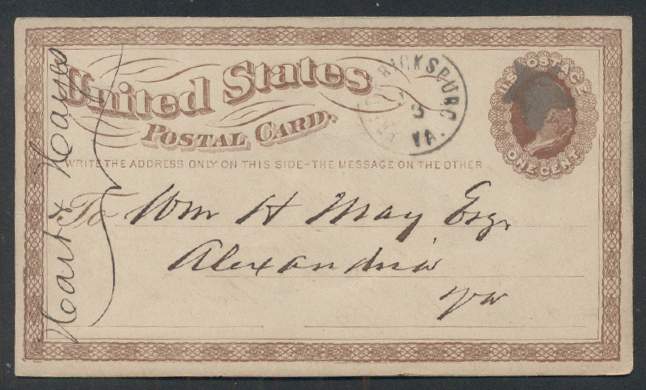 United States
POSTAL CARD.
WRITE THE ADDRESS ONLY ON THIS SIDE-THE MESSAGE ON THE OTHER
To Wm H May Esqr
Alexandria
Va
Hart & Hayes
RICKSBURG
VA.
U.S. POSTAGE
ONE CENT